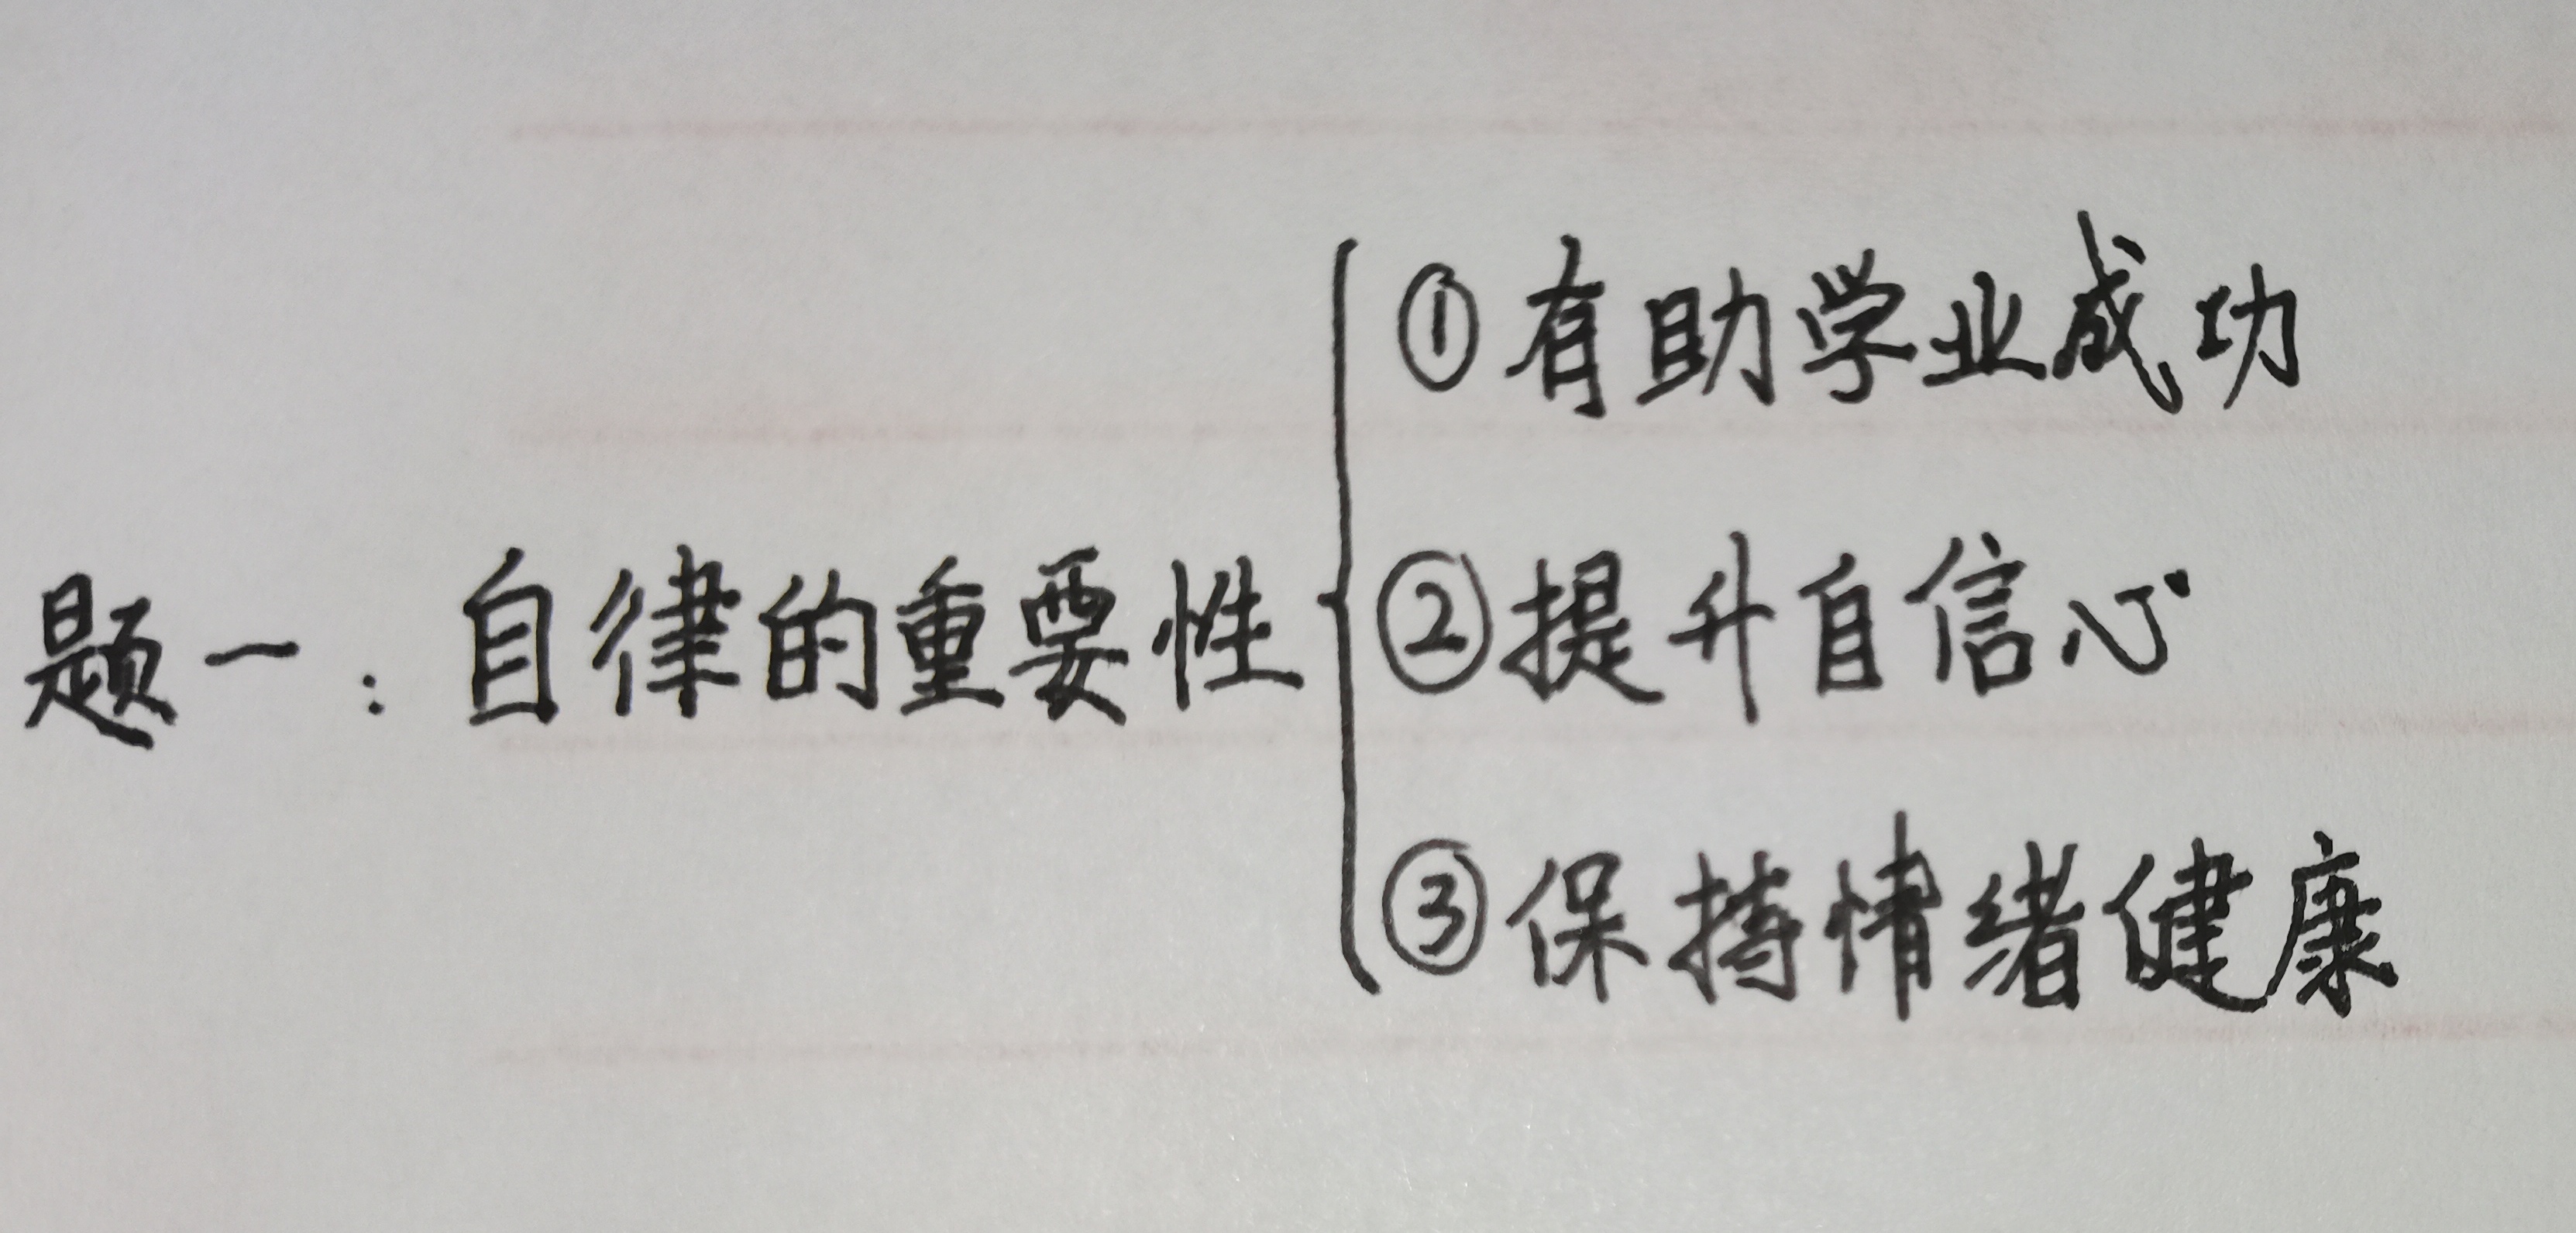 题一:自律的重要性
①有助学业成功
②提升自信心
③保持情绪健康